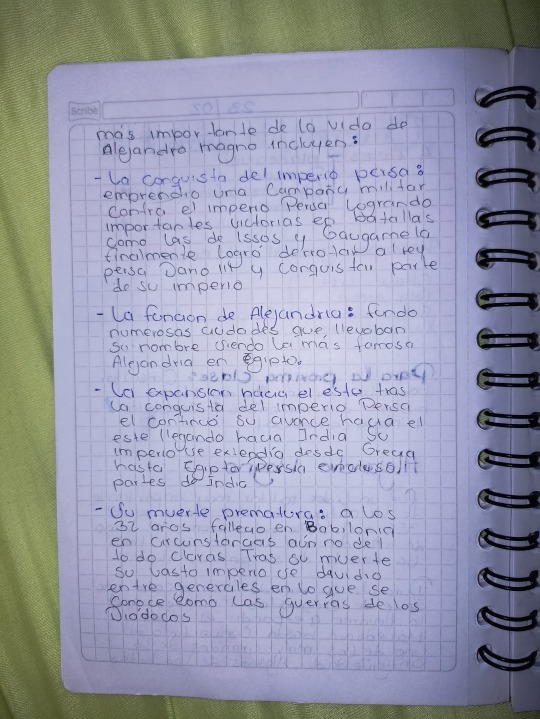 Scribe
más importante de la vida de
Alejandro magno incluyen:
- La conquista del imperio persa:
emprendio una Campaña militar
contra el imperio Persa Logrando
importantes victorias en batallas
como las de Issos y Gaugamela
finalmente logró derrotar al rey
persa Dario III y conquistar parte
de su imperio
- La funcion de Alejandria: fundo
numerosas ciudades que llevaban
su nombre siendo la más famosa
Alejandria en Egipto.
- La expansion hacia el este tras
la conquista del imperio Persa
el continuó su avance hacia el
este llegando hacia India su
imperio se extendía desde Grecia
hasta Egipto, Persia e incluso
partes de India
- Su muerte prematura: a los
32 años falleció en Babilonia
en circunstancias aún no del
todo claras Tras su muerte
su vasto imperio se dividio
entre generales en lo que se
conoce como las guerras de los
Diádocos